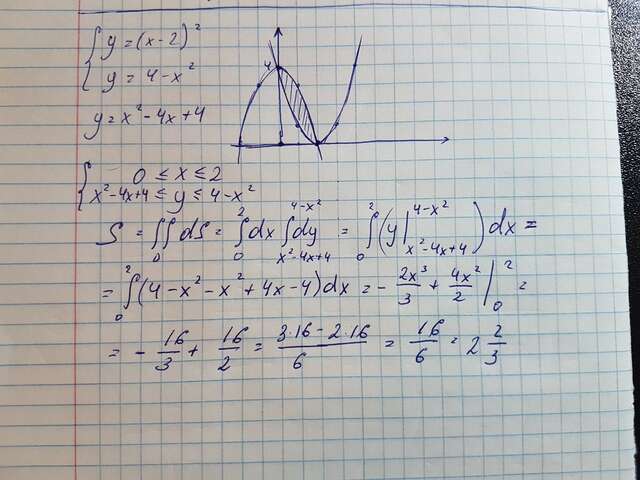 { y = (x-2)²
{ y = 4-x²
y = x²-4x+4
4
{ 0 ≤ x ≤ 2
{ x²-4x+4 ≤ y ≤ 4-x²
S = ∬_D dS = ∫₀² dx ∫_{x²-4x+4}^{4-x²} dy = ∫₀² (y |_{x²-4x+4}^{4-x²}) dx =
= ∫₀² (4-x²-x²+4x-4)dx = - 2x³/3 + 4x²/2 |₀² =
= - 16/3 + 16/2 = (3·16-2·16)/6 = 16/6 = 2 2/3